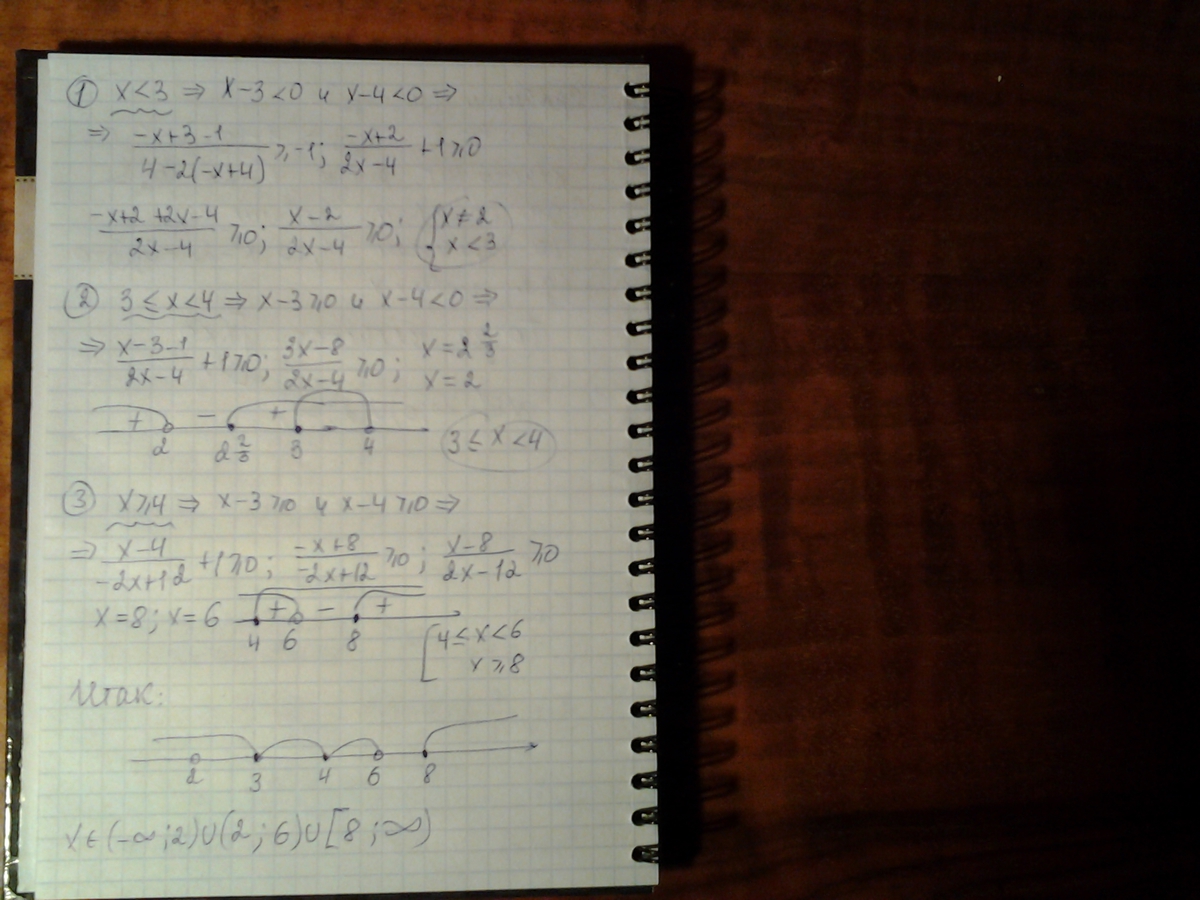 ① x<3 ⇒ x-3<0 и x-4<0 ⇒
⇒ (-x+3-1)/(4-2(-x+4)) ⩾ -1; (-x+2)/(2x-4) +1⩾0
(-x+2+2x-4)/(2x-4) ⩾0; (x-2)/(2x-4) ⩾0; { x≠2 x<3
② 3≤x<4 ⇒ x-3⩾0 и x-4<0 ⇒
⇒ (x-3-1)/(2x-4) +1⩾0; (3x-8)/(2x-4) ⩾0; x=2 2/3 x=2
+ - +
2 2 2/3 3 4 3≤x<4
③ x⩾4 ⇒ x-3⩾0 и x-4⩾0 ⇒
⇒ (x-4)/(-2x+12) +1⩾0; (-x+8)/(-2x+12) ⩾0; (x-8)/(2x-12) ⩾0
x=8; x=6 + - +
4 6 8 [ 4≤x<6 x⩾8
Итак:
2 3 4 6 8
x∈(-∞;2)∪(2;6)∪[8;∞)